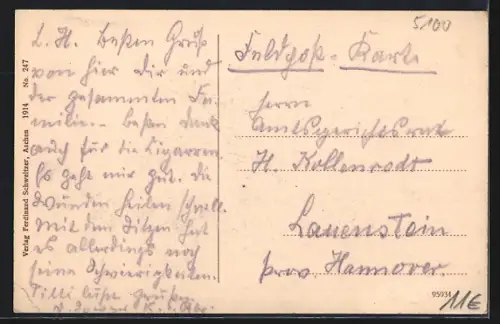 5100
L. H. Besten Gruß
von hier Dir und
der gesammten Fa-
milie. Besten Dank
auch für die Cigarren.
Es geht mir gut. Die
Wunden heilen schnell.
Mit dem Sitzen hat
es allerdings noch
seine Schwierigkeiten.
Titti läßt grüßen.
Verlag Ferdinand Schweitzer, Aachen 1914 No. 247
Feldpost-Karte
Herrn
Amtsgerichtsrat
H. Kollenrodt
Lauenstein
Prov. Hannover.
95934
11€